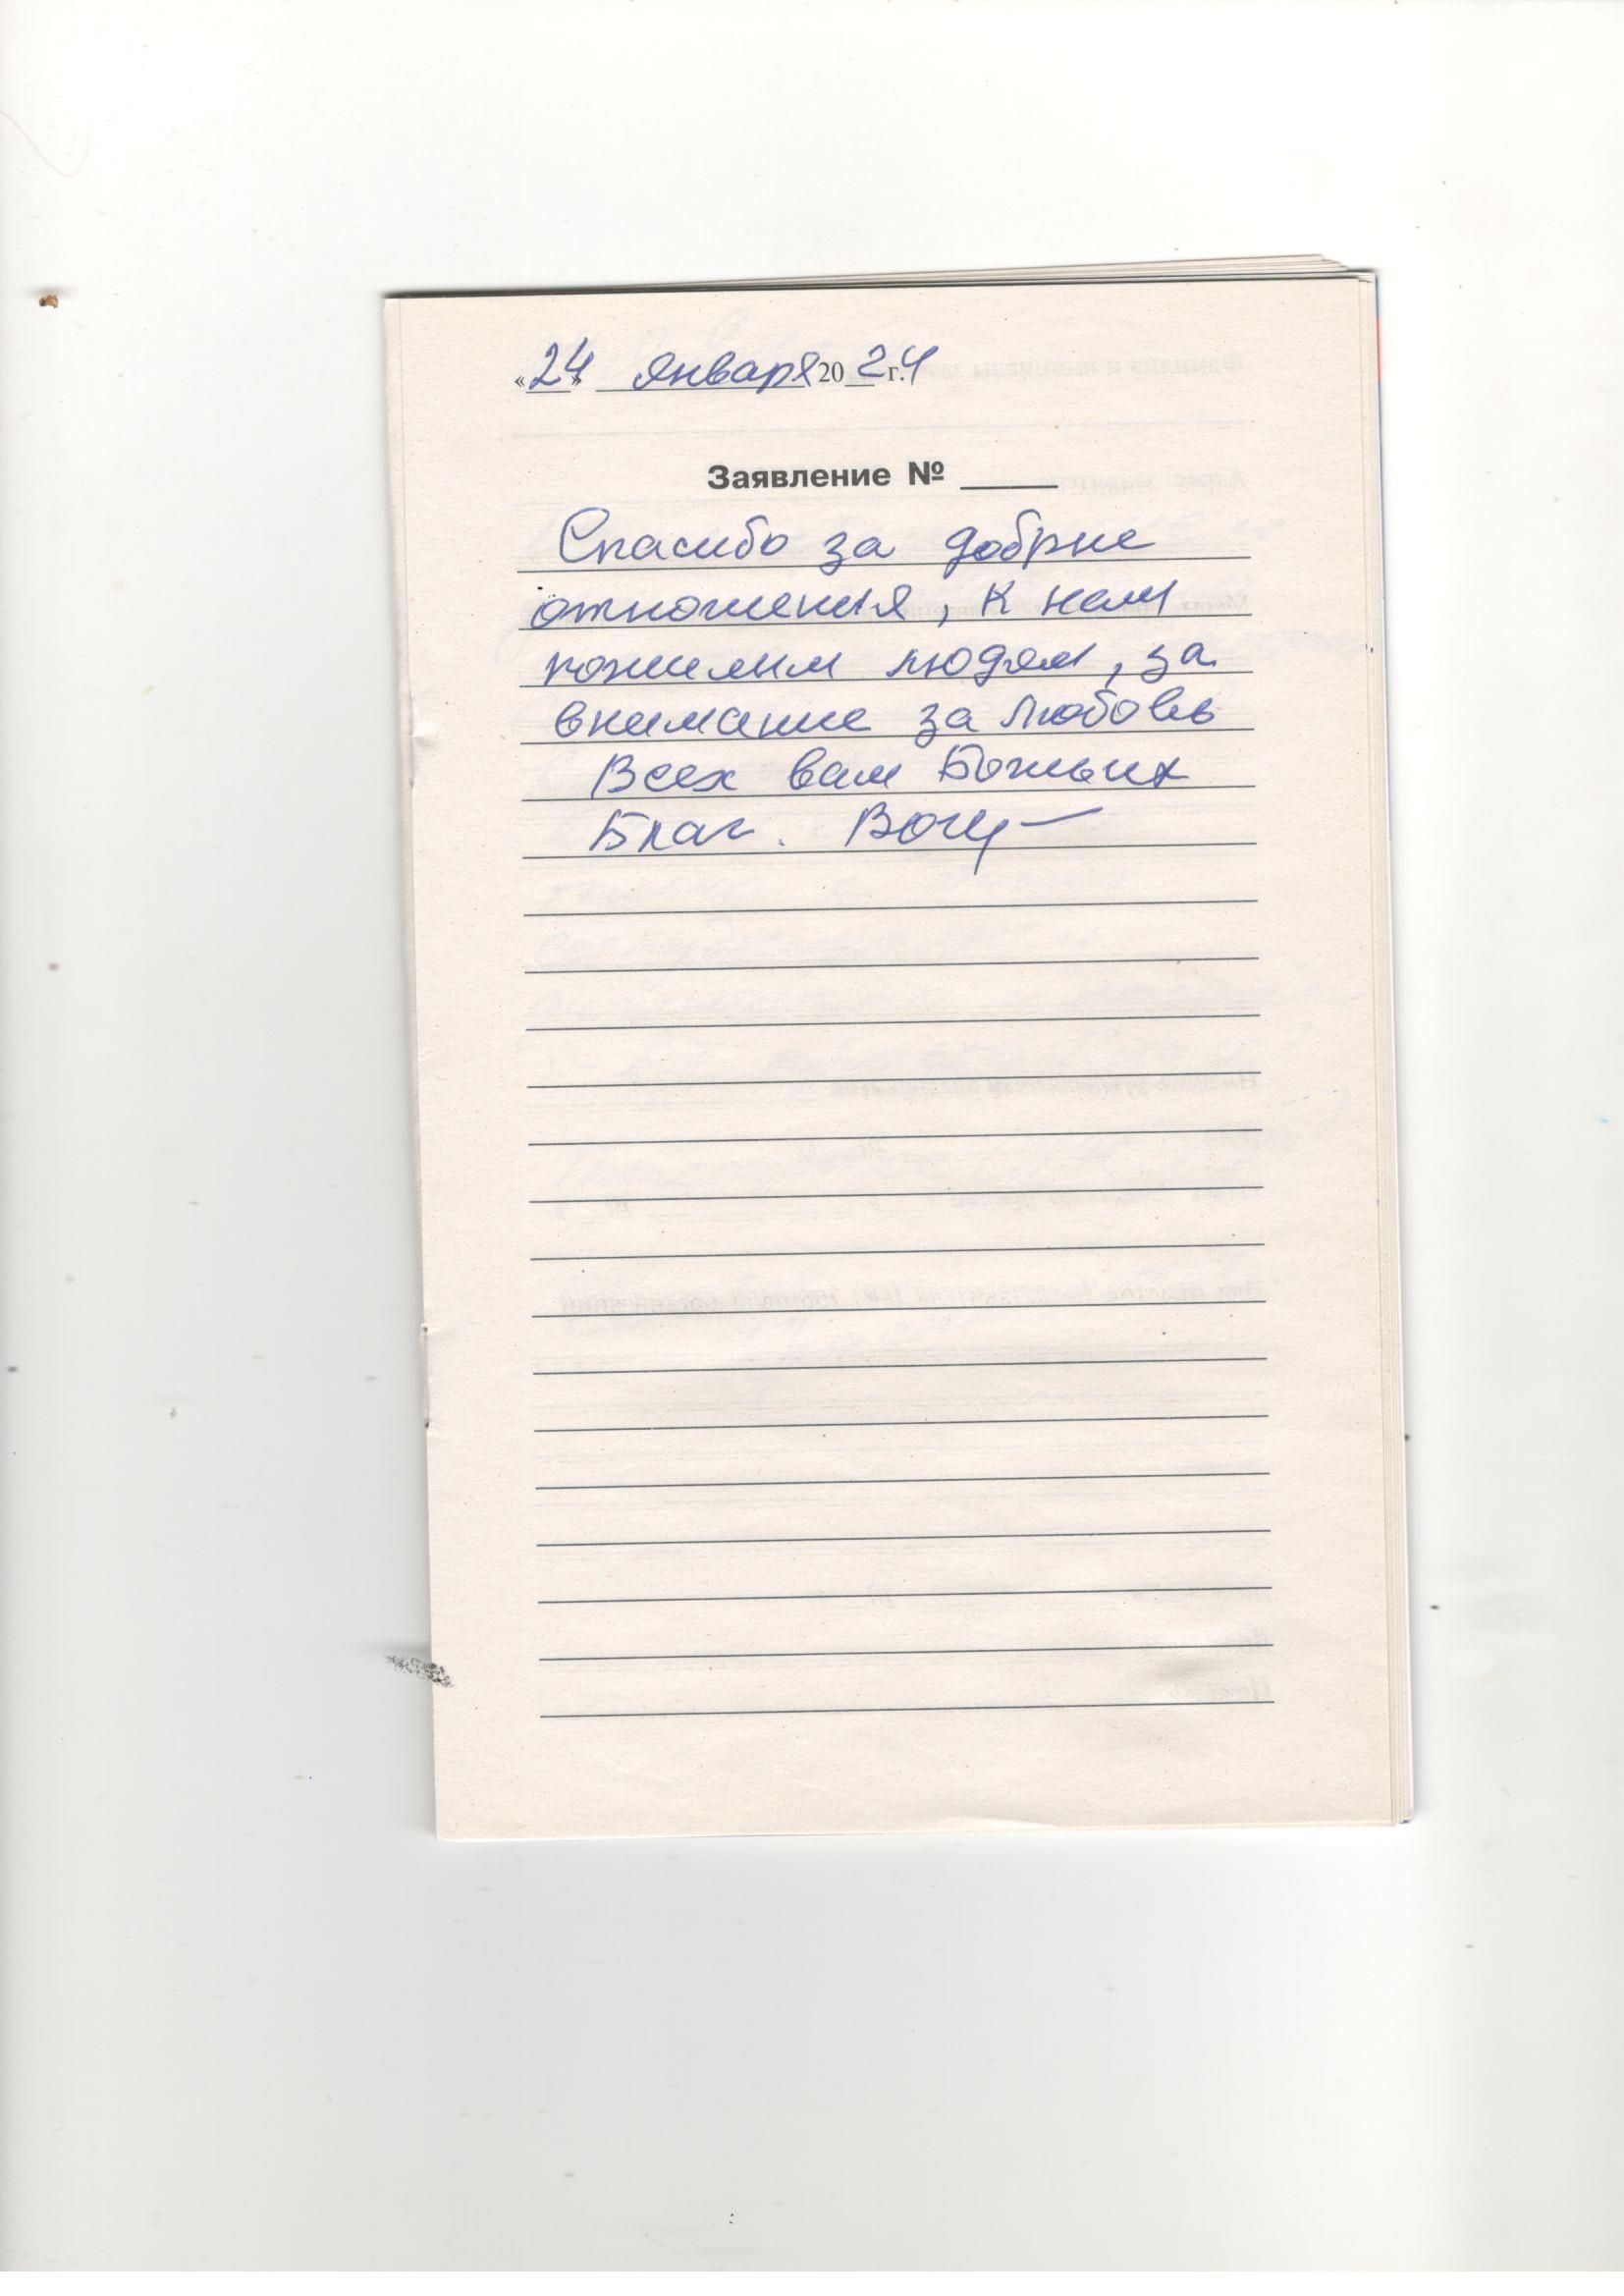 «24» января 2024 г.
Заявление № ____
Спасибо за добрые
отношения, к нам
пожилым людям, за
внимание за любовь
Всех вам Божьих
Благ.